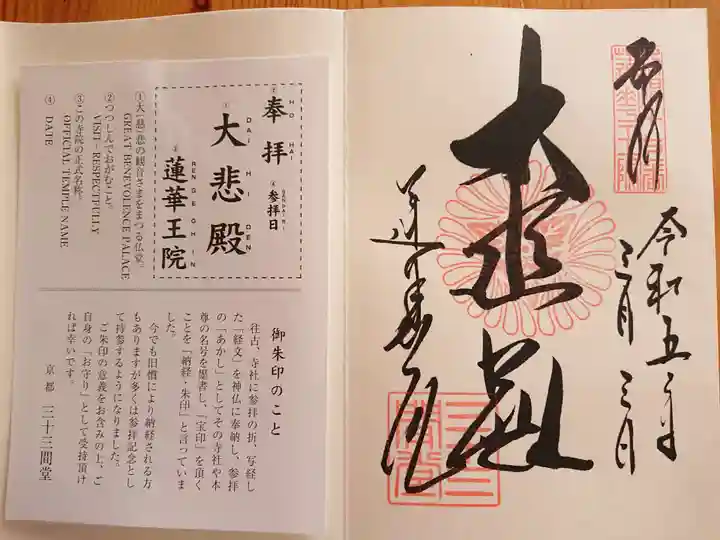 奉拝
令和五年
三月三日
大悲殿
蓮華王院
三十三間堂
② HO HAI
奉拝
④ SANPAI BI
参拝日
① DAI HI DEN
大悲殿
③ RENGE OH IN
蓮華王院
①大(慈)悲の観音さまをまつる仏堂。
GREAT BENEVOLENCE PALACE
②つつしんでおがむこと。
VISIT-RESPECTFULLY
③この寺院の正式名称。
OFFICIAL TEMPLE NAME
④ DATE
御朱印のこと
往古、寺社に参拝の折、写経し
た「経文」を神仏に奉納し、参拝
の「あかし」としてその寺社や本
尊の名号を墨書し、「宝印」を頂く
ことを「納経・朱印」と言っていま
した。
今でも旧慣により納経される方
もありますが多くは参拝記念とし
て持参するようになりました。
ご朱印の意義をお含みの上、ご
自身の「お守り」として受持頂け
れば幸いです。
京都 三十三間堂